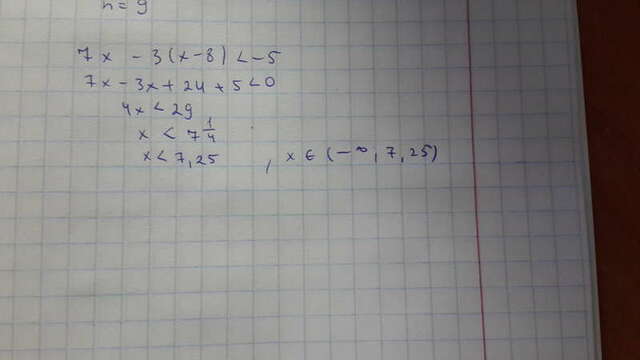 n = 9
7x - 3(x-8) < -5
7x - 3x + 24 + 5 < 0
4x < 29
x < 7 1/4
x < 7,25 , x ∈ (-∞, 7,25)